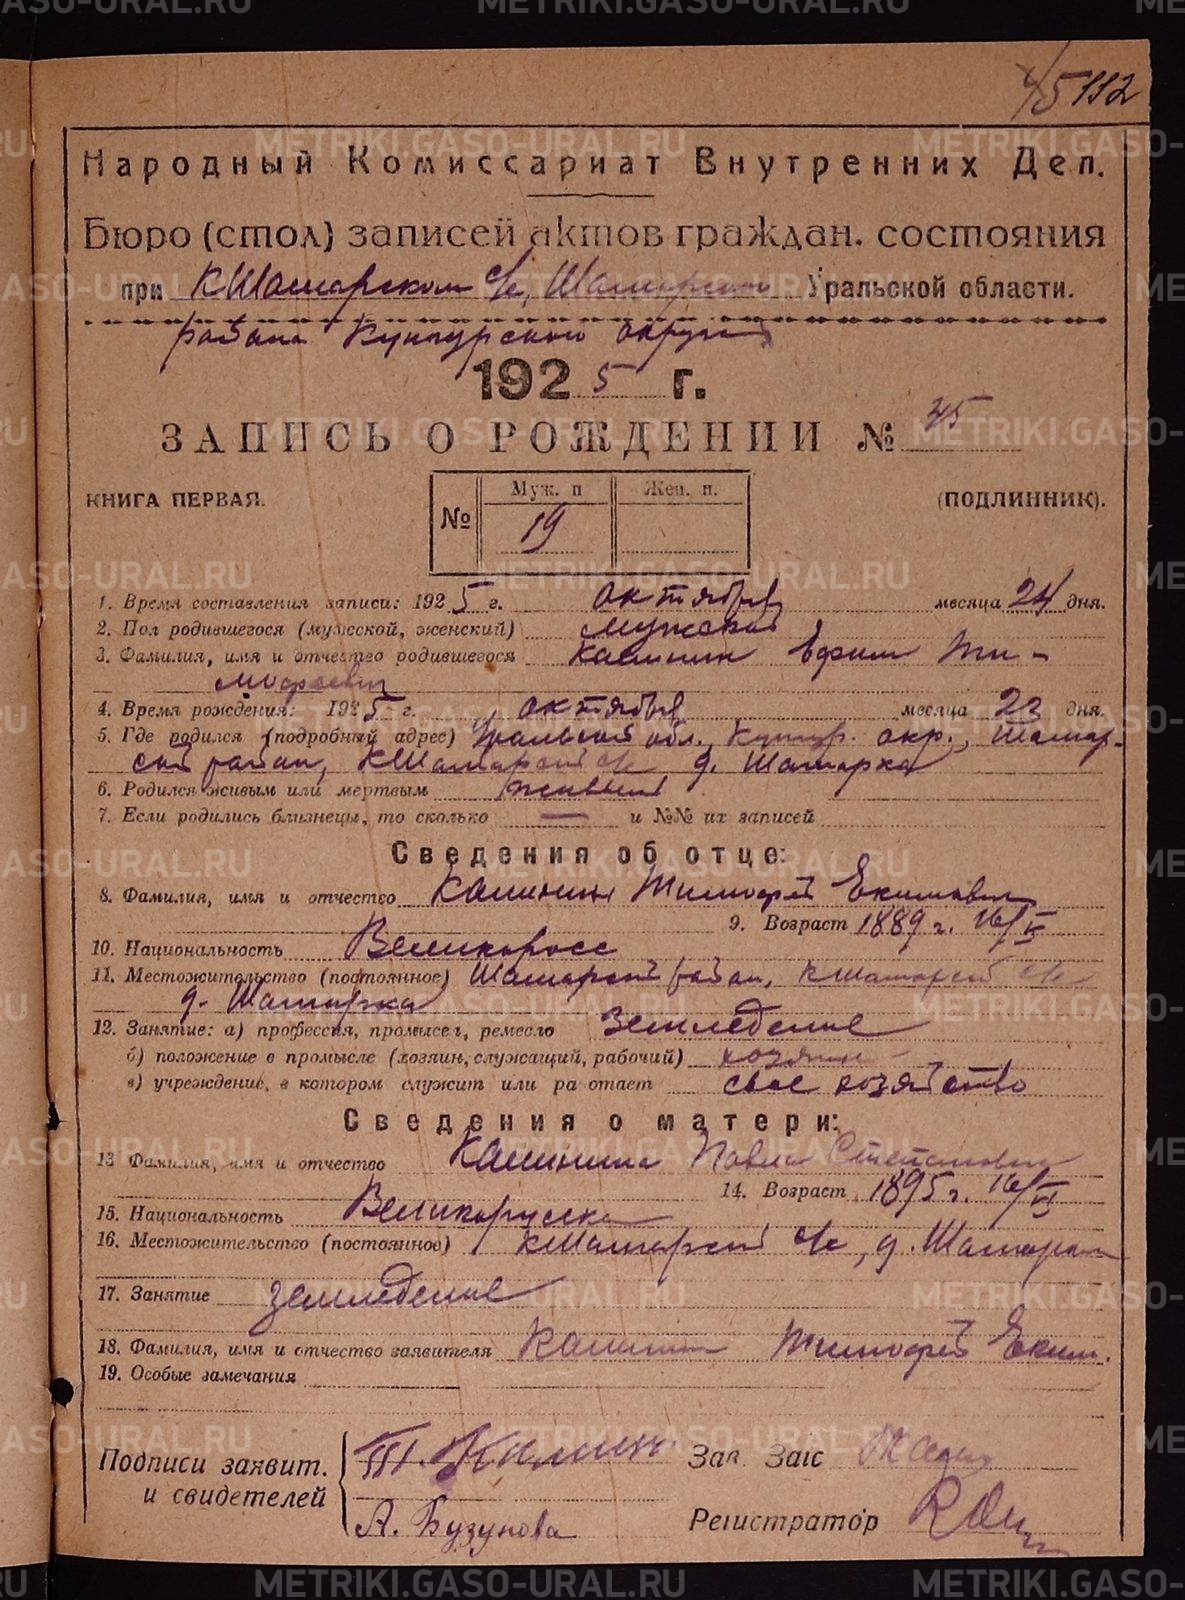 45 112
Народный Комиссариат Внутренних Дел.
Бюро (стол) записей актов граждан. состояния
при КШамарском с/с, Шамарского Уральской области.
района Кунгурского округа
1925 г.
ЗАПИСЬ О РОЖДЕНИИ № 45
КНИГА ПЕРВАЯ. (ПОДЛИННИК).
№ Муж. п Жен. п.
19
1. Время составления записи: 1925 г. октября месяца 24 дня.
2. Пол родившегося (мужской, женский) мужской
3. Фамилия, имя и отчество родившегося Калинин Ефим Ти-
мофеевич
4. Время рождения: 1925 г. октября месяца 23 дня.
5. Где родился (подробный адрес) Уральской обл., Кунгур. окр., Шамар-
ской район, КШамарской с/с, д. Шамарка
6. Родился живым или мертвым живым
7. Если родились близнецы, то сколько — и №№ их записей
Сведения об отце:
8. Фамилия, имя и отчество Калинин Тимофей Екимович
9. Возраст 1889 г.
10. Национальность Великоросс
11. Местожительство (постоянное) Шамарской район, КШамарской с/с
д. Шамарка
12. Занятие: а) профессия, промысел, ремесло земледелие
б) положение в промысле (хозяин, служащий, рабочий) хозяин
в) учреждение, в котором служит или ра отает свое хозяйство
Сведения о матери:
13 Фамилия, имя и отчество Калинина Павла Степановна
14. Возраст 1895 г.
15. Национальность Великорусска
16. Местожительство (постоянное) КШамарской с/с, д. Шамарка
17. Занятие земледелие
18. Фамилия, имя и отчество заявителя Калинин Тимофей Еким.
19. Особые замечания
Подписи заявит. и свидетелей
Т. Калинин
А. Бузунова
Зав. Загс
Регистратор
METRIKI.GASO-URAL.RU